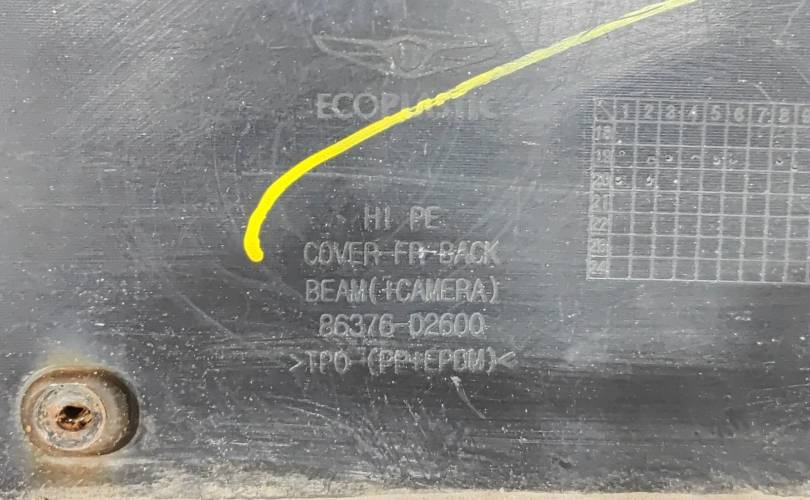 ECOPLASTIC
HI PE
COVER-FR BACK
BEAM(+CAMERA)
86376-D2600
>TPO-(PP+EPDM)<
1 2 3 4 5 6 7 8
18
19
20
21
22
23
24